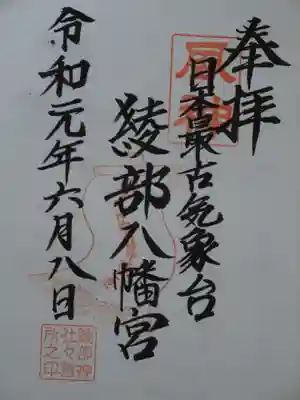 奉拝
日本最古気象台
綾部八幡宮
令和元年六月八日
風神
綾部神
社々務
所之印